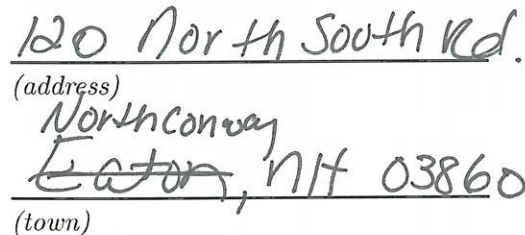 120 North South Rd.
(address)
North Conway
Eaton, NH 03860
(town)